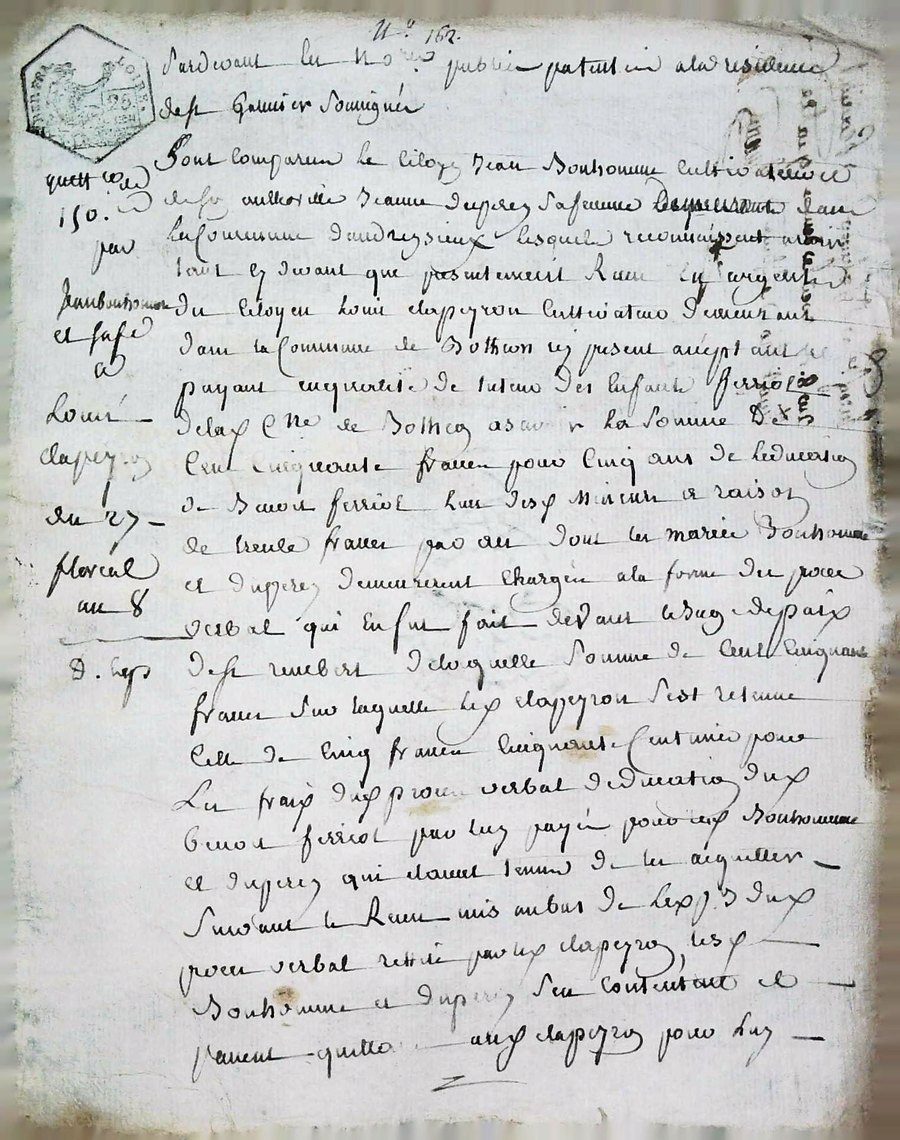 N° 162.
Pardevant les Nores publics patentés a la residence
de st Galmier Soussignés
Sont Comparus le Citoyen Jean Bonhomme Cultivateur et
de son authorité Jeanne duperey sa femme Demeurant dans
la Commune d'andreysieux lesquels reconnaissent avoir
tout cy devant que presentement Recu en argent
du Citoyen Louis Clapeyron Cultivateur demeurant
dans la Commune de Bothion icy present acceptant
payant en qualité de tuteur des Enfants ferriol
de la Cne de Bothion a savoir la Somme De
Cent Cinquante francs pour Cinq ans de l'education
de Benoit ferriol l'un desd mineurs a raison
de trente francs par an dont les mariés Bonhomme
et duperey demeurerent Chargés a la forme du proces
verbal qui en fut fait devant le Juge de paix
de st rembert de laquelle Somme de Cent Cinquante
francs sur laquelle led Clapeyron s'est retenu
Celle de Cinq francs Cinquante Centimes pour
Les frais dud proces verbal d'education dud
benoit ferriol par luy payés pour lesd Bonhomme
et duperey qui etaient tenus de les acquitter
Suivant le Recu mis au bas de l'exp.on dud
proces verbal retiré par led Clapeyron, lesd
Bonhomme et duperey s'en Contentent et
passent quitta aud Clapeyron pour luy
quittance
150.
par
Jean bonhomme
et sa fe
a
Louis
Clapeyron
du 27
floréal
an 8
D. Exp